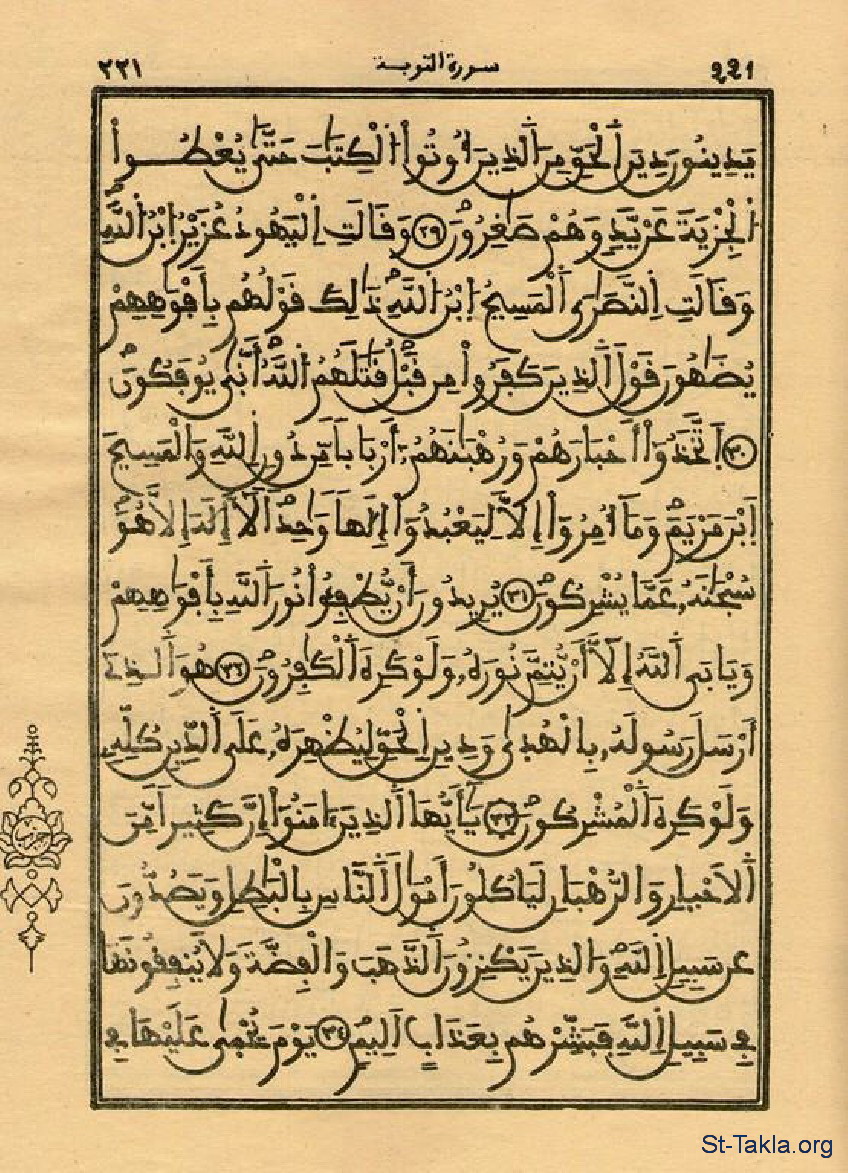 ٢٢١ سورة التوبة 221
يَدِينُونَ دِينَ اَ۬لْحَقِّ مِنَ اَ۬لذِينَ أُوتُوا۟ اُ۬لْكِتَٰبَ حَتَّىٰ يُعْطُوا۟
اُ۬لْجِزْيَةَ عَنْ يَّدٍ وَهُمْ صَٰغِرُونَۖ ٢٩ وَقَالَتِ اِ۬لْيَهُودُ عُزَيْرُ اُ۪بْنُ اُ۬للَّهِۖ
وَقَالَتِ اِ۬لنَّصَٰرَى اَ۬لْمَسِيحُ اُ۪بْنُ اُ۬للَّهِۖ ذَٰلِكَ قَوْلُهُم بِأَفْوَٰهِهِمْ
يُضَٰهُونَ قَوْلَ اَ۬لذِينَ كَفَرُوا۟ مِن قَبْلُۖ قَٰتَلَهُمُ اُ۬للَّهُۖ أَنَّىٰ يُوفَكُونَۖ
٣٠ اَ۪تَّخَذُوٓا۟ أَحْبَارَهُمْ وَرُهْبَٰنَهُمُۥٓ أَرْبَاباً مِّن دُونِ اِ۬للَّهِ وَالْمَسِيحَ
اَ۪بْنَ مَرْيَمَۖ وَمَآ أُمِرُوٓا۟ إِلَّا لِيَعْبُدُوٓا۟ إِلَٰهاً وَٰحِداًۖ لَّآ إِلَٰهَ إِلَّا هُوَۖ
سُبْحَٰنَهُۥ عَمَّا يُشْرِكُونَۖ ٣١ يُرِيدُونَ أَنْ يُّطْفِـُٔوا۟ نُورَ اَ۬للَّهِ بِأَفْوَٰهِهِمْ
وَيَابَى اَ۬للَّهُ إِلَّآ أَنْ يُّتِمَّ نُورَهُۥ وَلَوْ كَرِهَ اَ۬لْكَٰفِرُونَۖ ٣٢ هُوَ اَ۬لذِےٓ
أَرْسَلَ رَسُولَهُۥ بِالْهُدَىٰ وَدِينِ اِ۬لْحَقِّ لِيُظْهِرَهُۥ عَلَى اَ۬لدِّينِ كُلِّهِۦ
وَلَوْ كَرِهَ اَ۬لْمُشْرِكُونَۖ ٣٣ يَٰٓأَيُّهَا اَ۬لذِينَ ءَامَنُوٓا۟ إِنَّ كَثِيراً مِّنَ
اَ۬لَاحْبِارِ وَالرُّهْبَانِ لَيَاكُلُونَ أَمْوَٰلَ اَ۬لنَّاسِ بِالْبَٰطِلِ وَيَصُدُّونَ
عَن سَبِيلِ اِ۬للَّهِۖ وَالذِينَ يَكْنِزُونَ اَ۬لذَّهَبَ وَالْفِضَّةَ وَلَا يُنفِقُونَهَا
فِے سَبِيلِ اِ۬للَّهِ فَبَشِّرْهُم بِعَذَابٍ أَلِيمٍۖ ٣٤ يَوْمَ يُحْمَىٰ عَلَيْهَا فِے
St-Takla.org